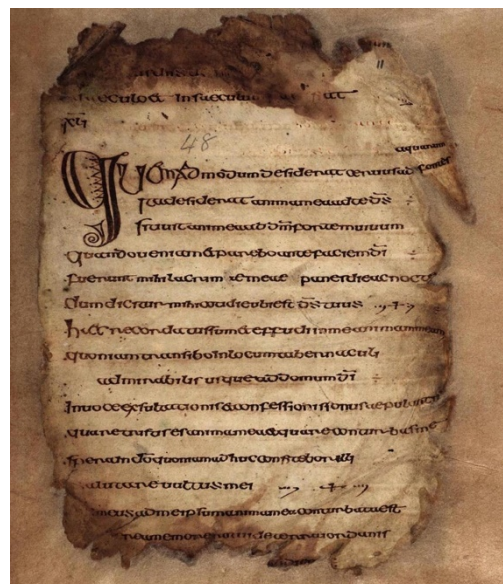 11
saeculo et in saeculum fiat
xli
48
aquarum
Quemadmodum desiderat ceruus ad fontes
ita desiderat anima mea ad te d̄s
sitiuit anima mea ad dm̄ fortem uiuum
quando ueniam & parebo ante faciem dī
fuerunt mihi lacrimae meae panes die ac nocte
dum dicitur mihi cotidie ubi est d̄s tuus
haec recordatus sum & effudi in me animam meam
quoniam transibo in locum tabernaculi
admirabilis usque ad domum dī
in uoce exsultationis & confessionis sonus aepulantis
quare tristis es anima mea & quare conturbas me
spera in dō quoniam adhuc confitebor illi
salutare uultus mei
meus ad me ipsum anima mea conturbata est
rea memor ero tui de terra iordanis